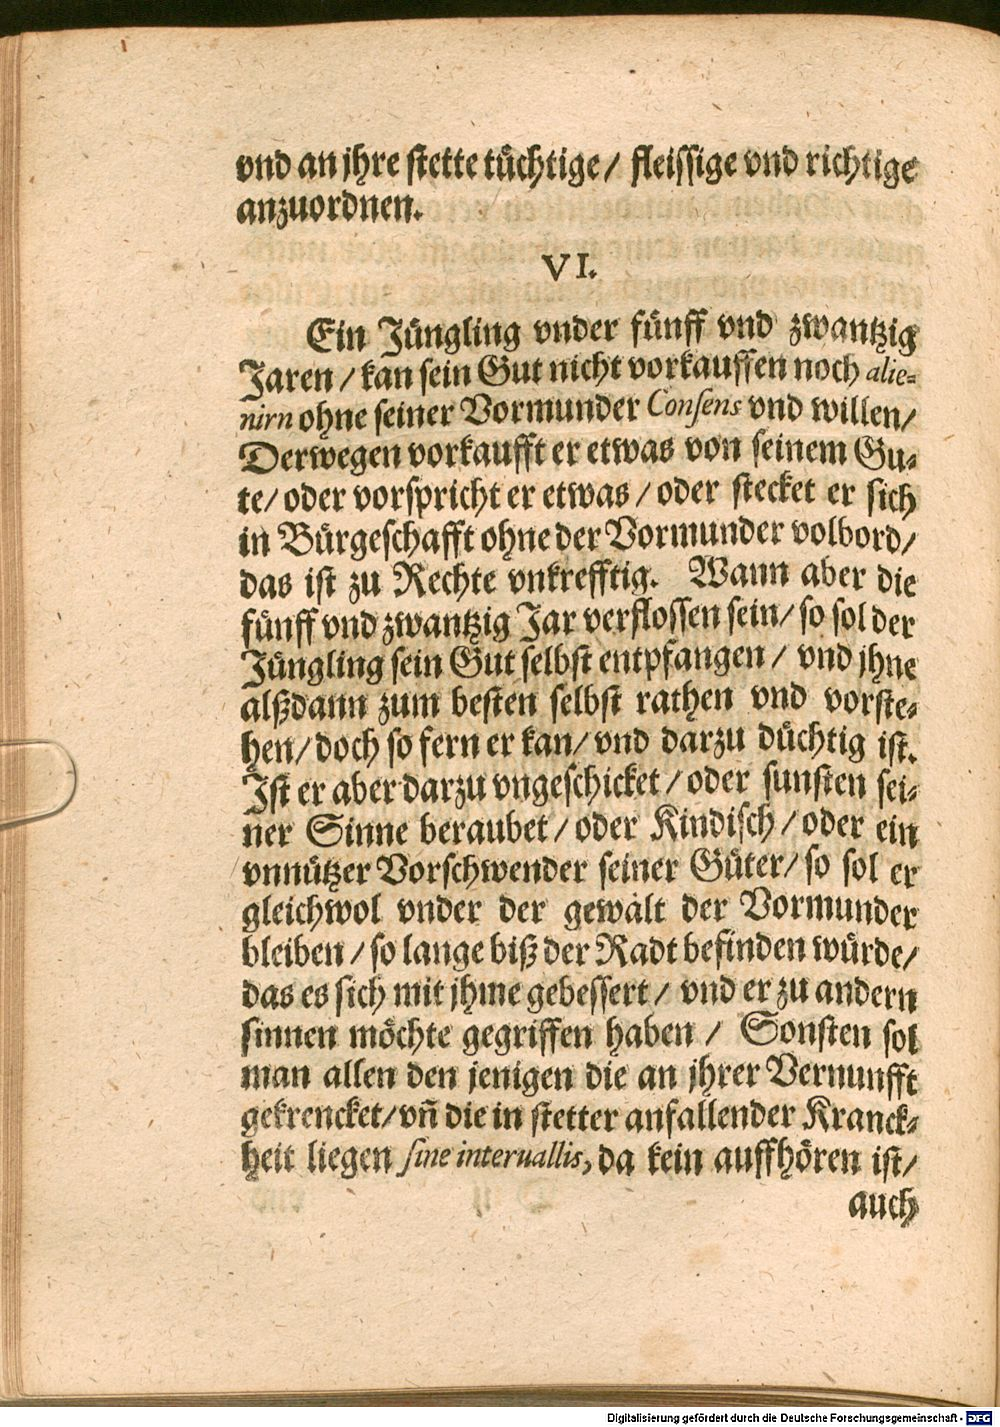 vnd an jhre stette tüchtige/ fleissige vnd richtige
anzuordnen.
VI.
Ein Jüngling vnder fünff vnd zwantzig
Jaren/ kan sein Gut nicht vorkauffen noch alie-
nirn ohne seiner Vormunder Consens vnd willen/
Derwegen vorkaufft er etwas von seinem Gu-
te/ oder vorspricht er etwas/ oder stecket er sich
in Bürgeschafft ohne der Vormunder volbord/
das ist zu Rechte vnkrefftig. Wann aber die
fünff vnd zwantzig Jar verflossen sein/ so sol der
Jüngling sein Gut selbst entpfangen/ vnd jhne
alßdann zum besten selbst rathen vnd vorste-
hen/ doch so fern er kan/ vnd darzu düchtig ist.
Ist er aber darzu vngeschicket/ oder sunsten sei-
ner Sinne beraubet/ oder Kindisch/ oder ein
vnnützer Vorschwender seiner Güter/ so sol er
gleichwol vnder der gewalt der Vormunder
bleiben/ so lange biß der Radt befinden würde/
das es sich mit jhme gebessert/ vnd er zu andern
sinnen möchte gegriffen haben/ Sonsten sol
man allen den jenigen die an jhrer Vernunfft
gekrencket/ vn̄ die in stetter anfallender Kranck-
heit liegen sine interuallis, da kein auffhören ist/
auch
Digitalisierung gefördert durch die Deutsche Forschungsgemeinschaft - DFG